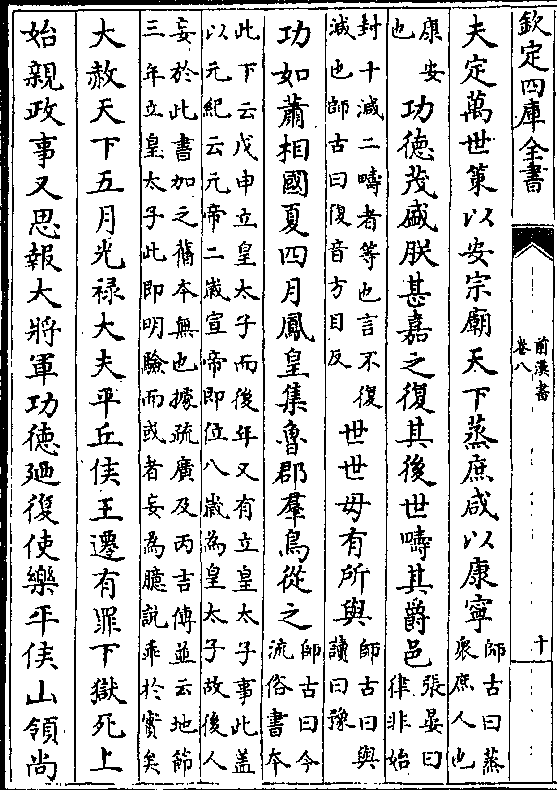 欽定四庫全書
前漢書
卷八
十
夫定萬世策以安宗廟天下蒸庶咸以康寧
師古曰蒸
衆庶人也
康安
也
功德茂盛朕甚嘉之復其後世疇其爵邑
張晏曰
律非始
封十減二疇者等也言不復
減也師古曰復音方目反
世世毋有所與
師古曰與
讀曰豫
功如蕭相國夏四月鳳皇集魯郡羣鳥從之
師古曰今
流俗書本
此下云戊申立皇太子而後年又有立皇太子事此盖
以元紀云元帝二嵗宣帝即位八嵗為皇太子故後人
妄於此書加之舊本無也據疏廣及丙吉傳並云地節
三年立皇太子此即明驗而或者妄為臆說乖於實矣
大赦天下五月光禄大夫平丘侯王遷有罪下獄死上
始親政事又思報大將軍功德廼復使樂平侯山領尚